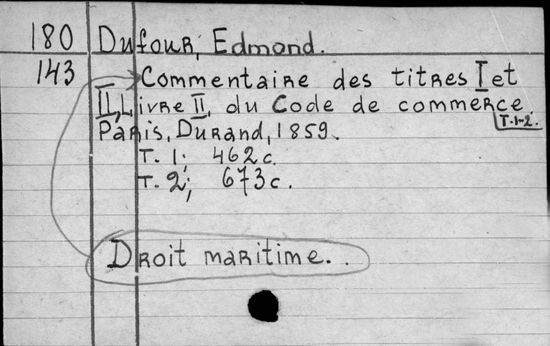 180 Dufour, Edmond.
143 Commentaire des titres I et
II, Livre II, du Code de commerce.
Paris, Durand, 1859. T. 1-2.
T. 1; 462 c.
T. 2; 673 c.
Droit maritime.